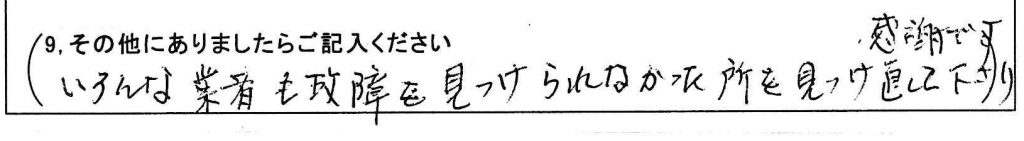 9, その他にありましたらご記入ください
いろんな業者も故障を見つけられなかった所を見つけ直して下さり
感謝です